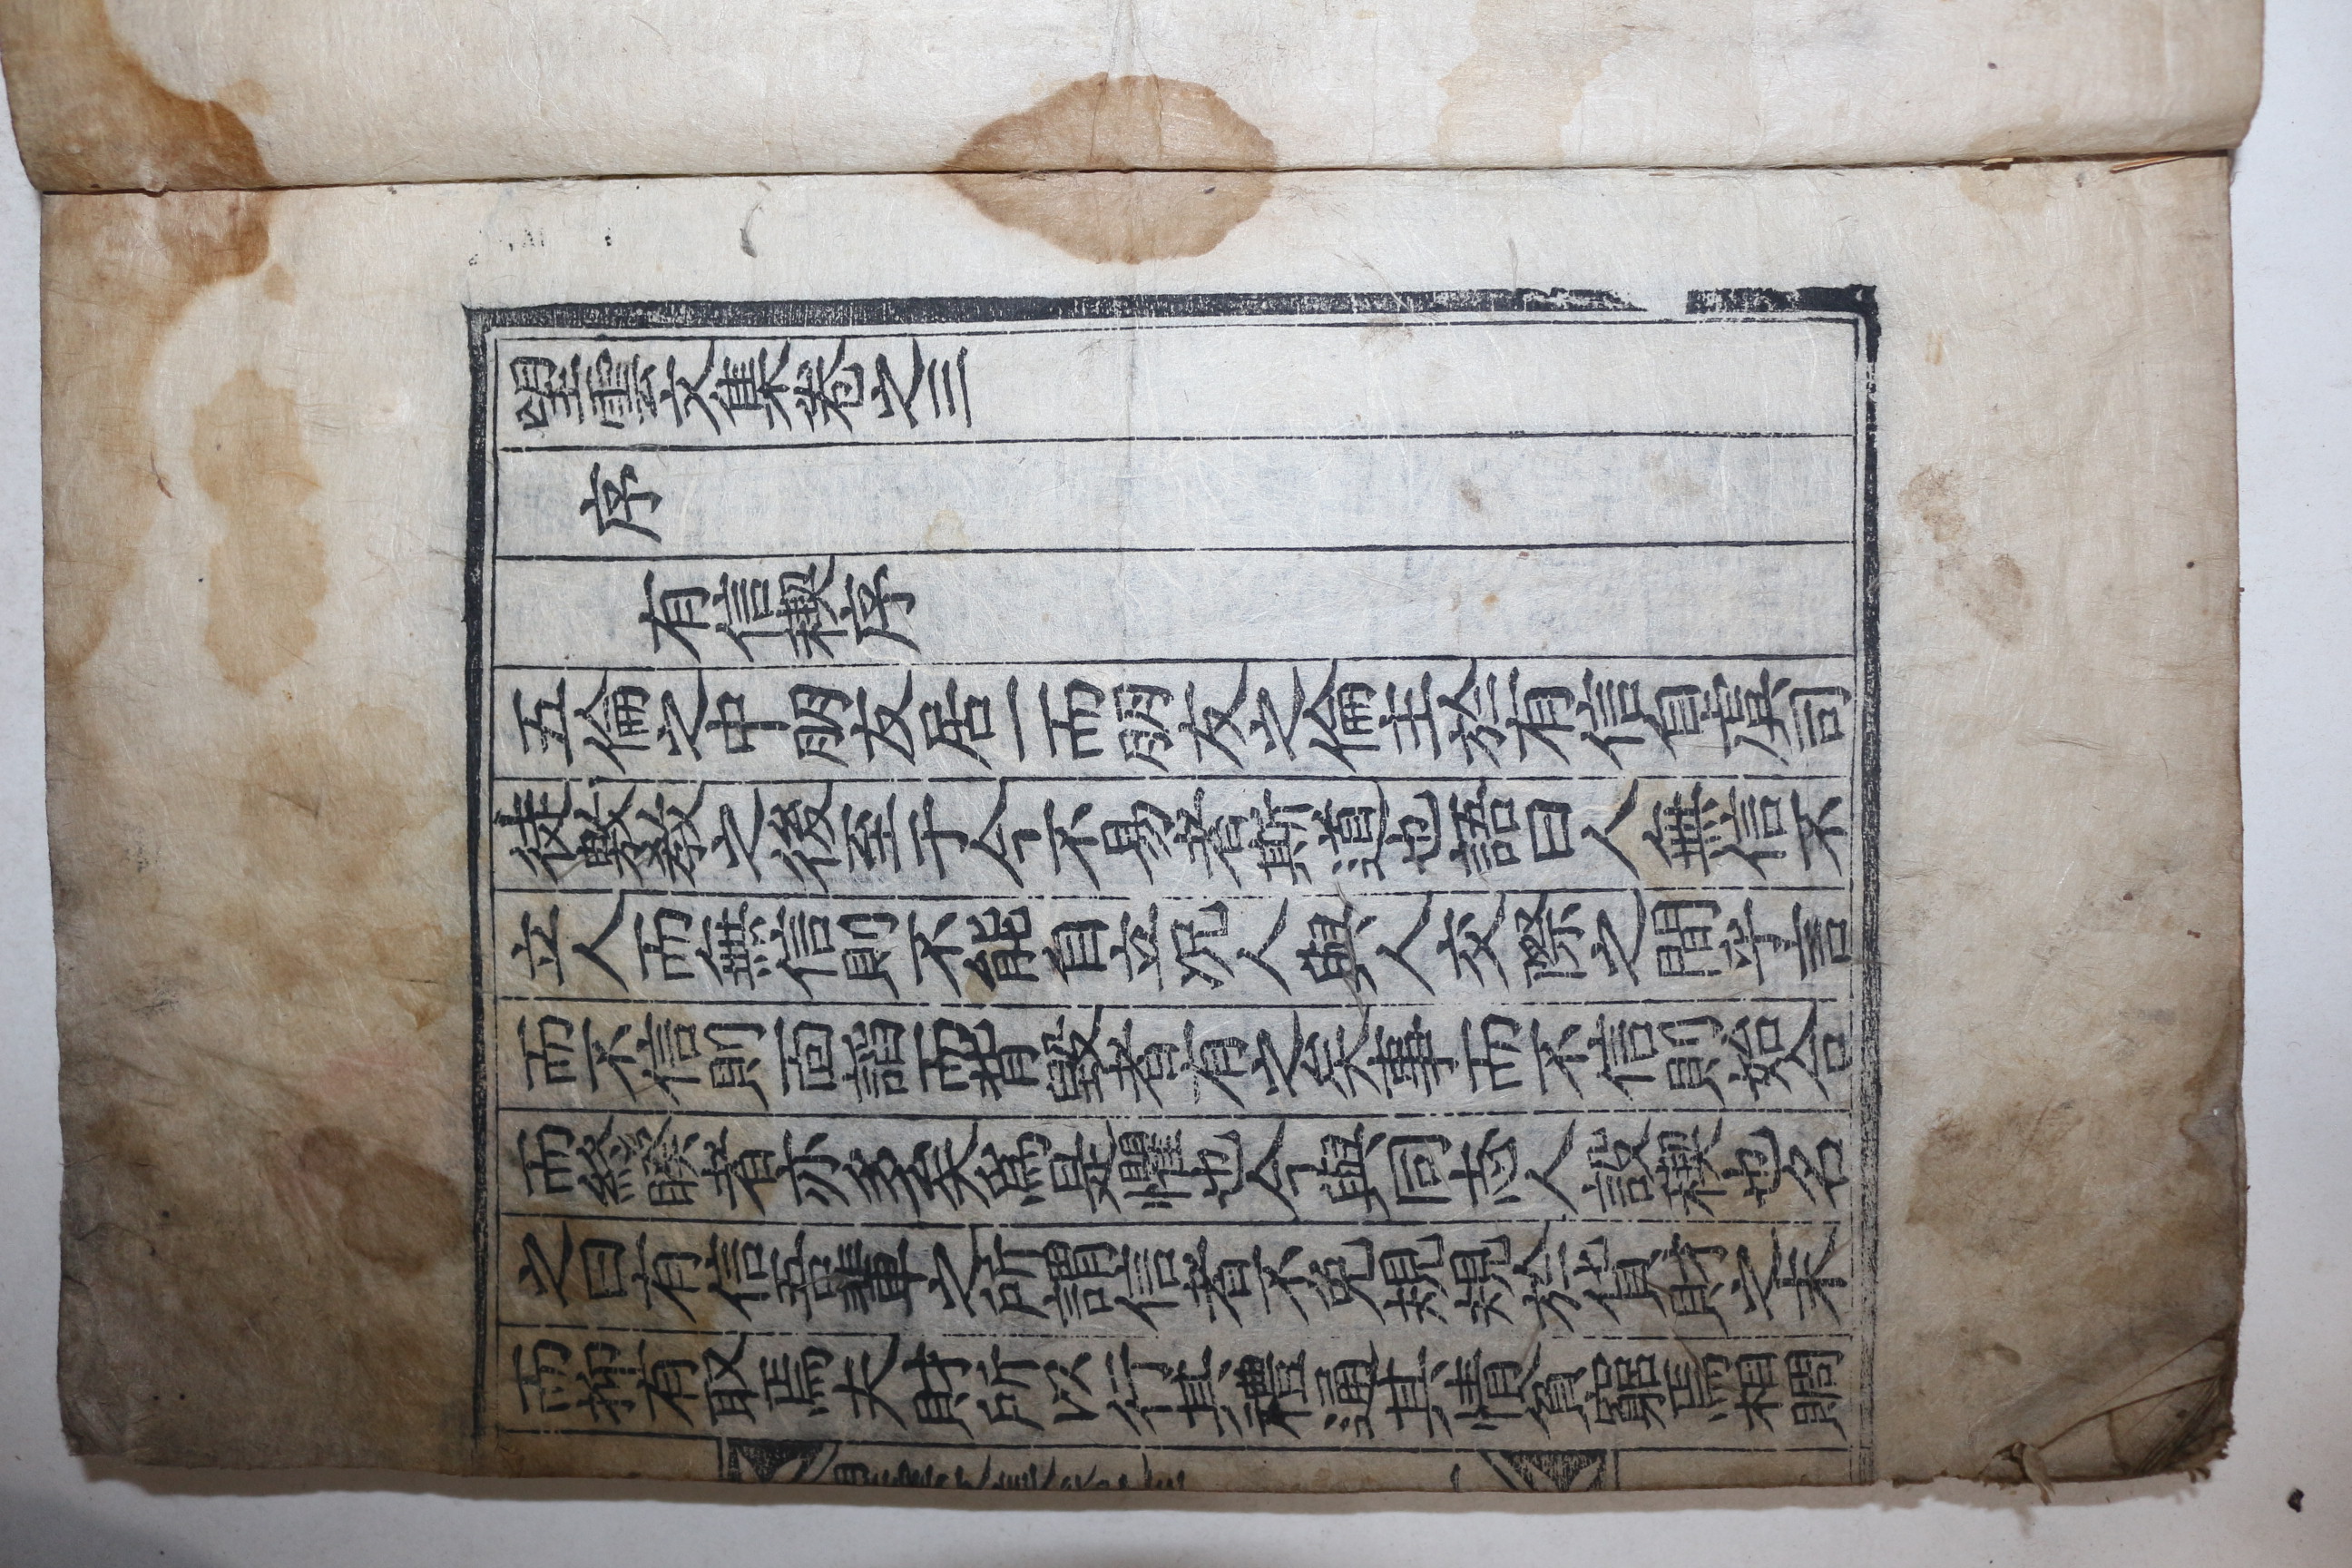 望雲文集卷之三
序
有信稧序
五倫之中朋友居一而朋友之倫主於有信自虞司
徒敷敎之後至于今不易者斯道也語曰人無信不
立人而無信則不能自立况人與人交際之間乎言
而不信則面謟而背毀者有之矣事而不信則始合
而終睽者亦多矣爲是懼也今與同志人設稧也名
之曰有信吾輩之所謂信者不免規規於貨財之末
而抑有取焉夫財所以行其禮通其情貧窮焉相賙